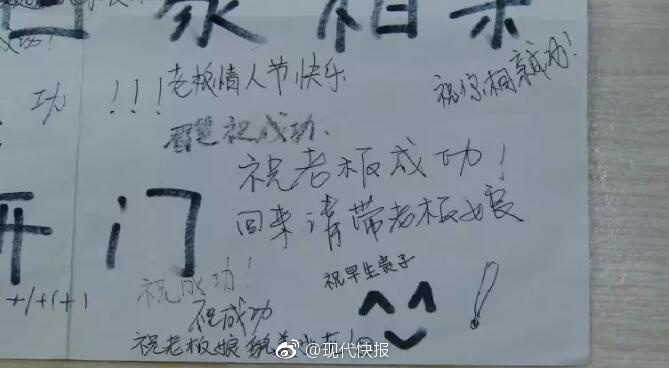 回家相亲
成功!
功 !!!
老板情人节快乐
祝你相亲成功!
祝成功.
祝老板成功!
开门
回来请带老板娘
祝成功!
祝早生贵子
+1+1(+1
祝成功
祝老板娘貌美如花!
@现代快报